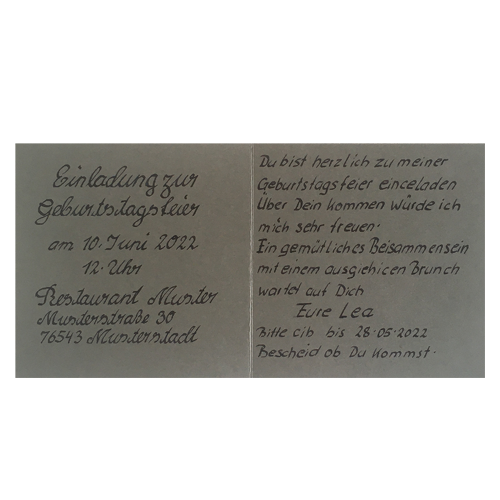 Einladung zur
Geburtstagsfeier
am 10. Juni 2022
12. Uhr
Restaurant Muster
Musterstraße 30
76543 Musterstadt
Du bist herzlich zu meiner
Geburtstagsfeier eingeladen
Über Dein Kommen würde ich
mich sehr freuen.
Ein gemütliches Beisammensein
mit einem ausgiebigen Brunch
wartet auf Dich
Eure Lea
Bitte gib bis 28.05.2022
Bescheid ob Du kommst.